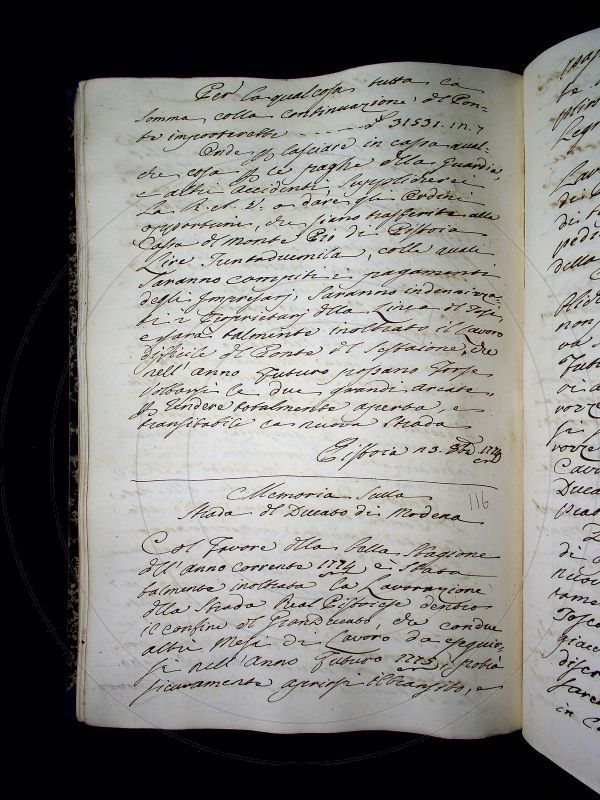 Per la qual cosa tutta ca
somma colla continuazione del Pon-
te importerebbe ---- £ 31531. 11. 7
Onde p lasciare in cassa qual-
che cosa p le paghe della Guardia,
e altri accidenti, supplicherei
la R.A.V. a dare gli Ordini
opportuni, che siano trasferite alla
Cassa del Monte Pio di Pistoia
Lire Trentaduemila, colla quali
saranno compiti i pagamenti
degli Impresarj, saranno indennizza-
ti i Proprietarj della Linea
e sarà talmente inoltrato il lavoro
difficile del Ponte del Sestaione, che
nell' anno futuro possano forse
voltarsi le due grandi arcate,
p rendere totalmente aperta, e
transitabile la nuova strada
Pistoia 1774
Memoria sulla 116
strada del Ducato di Modena
Col favore della bella stagione
dell' anno corrente 1774 è stata
talmente inoltrata la Lavorazione
della Strada Real Pistoiese dentro
il confine del GranDucato, che con due
altri Mesi di Lavoro da eseguir-
si nell' Anno futuro 1775, potrà
sicuramente aprirsi il transito, e